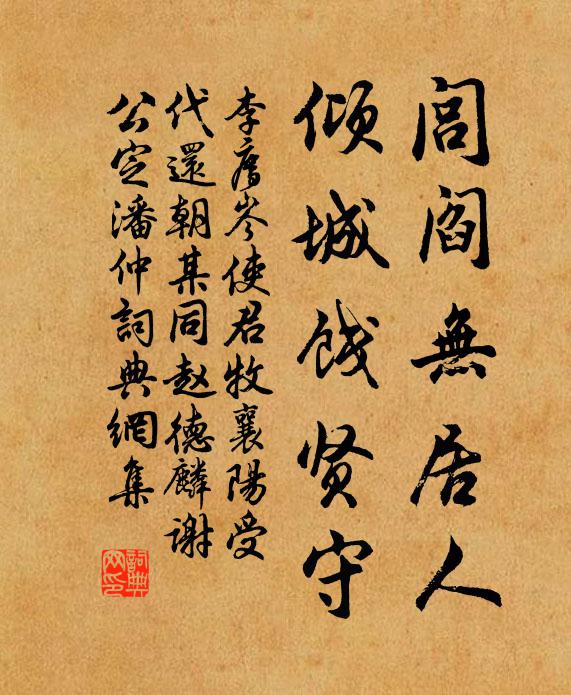 闾阎無居人
倾城饯贤守
李膺岑使君牧襄陽受
代還朝某同赵德麟谢
公定潘仲詞典網集
詞典网印